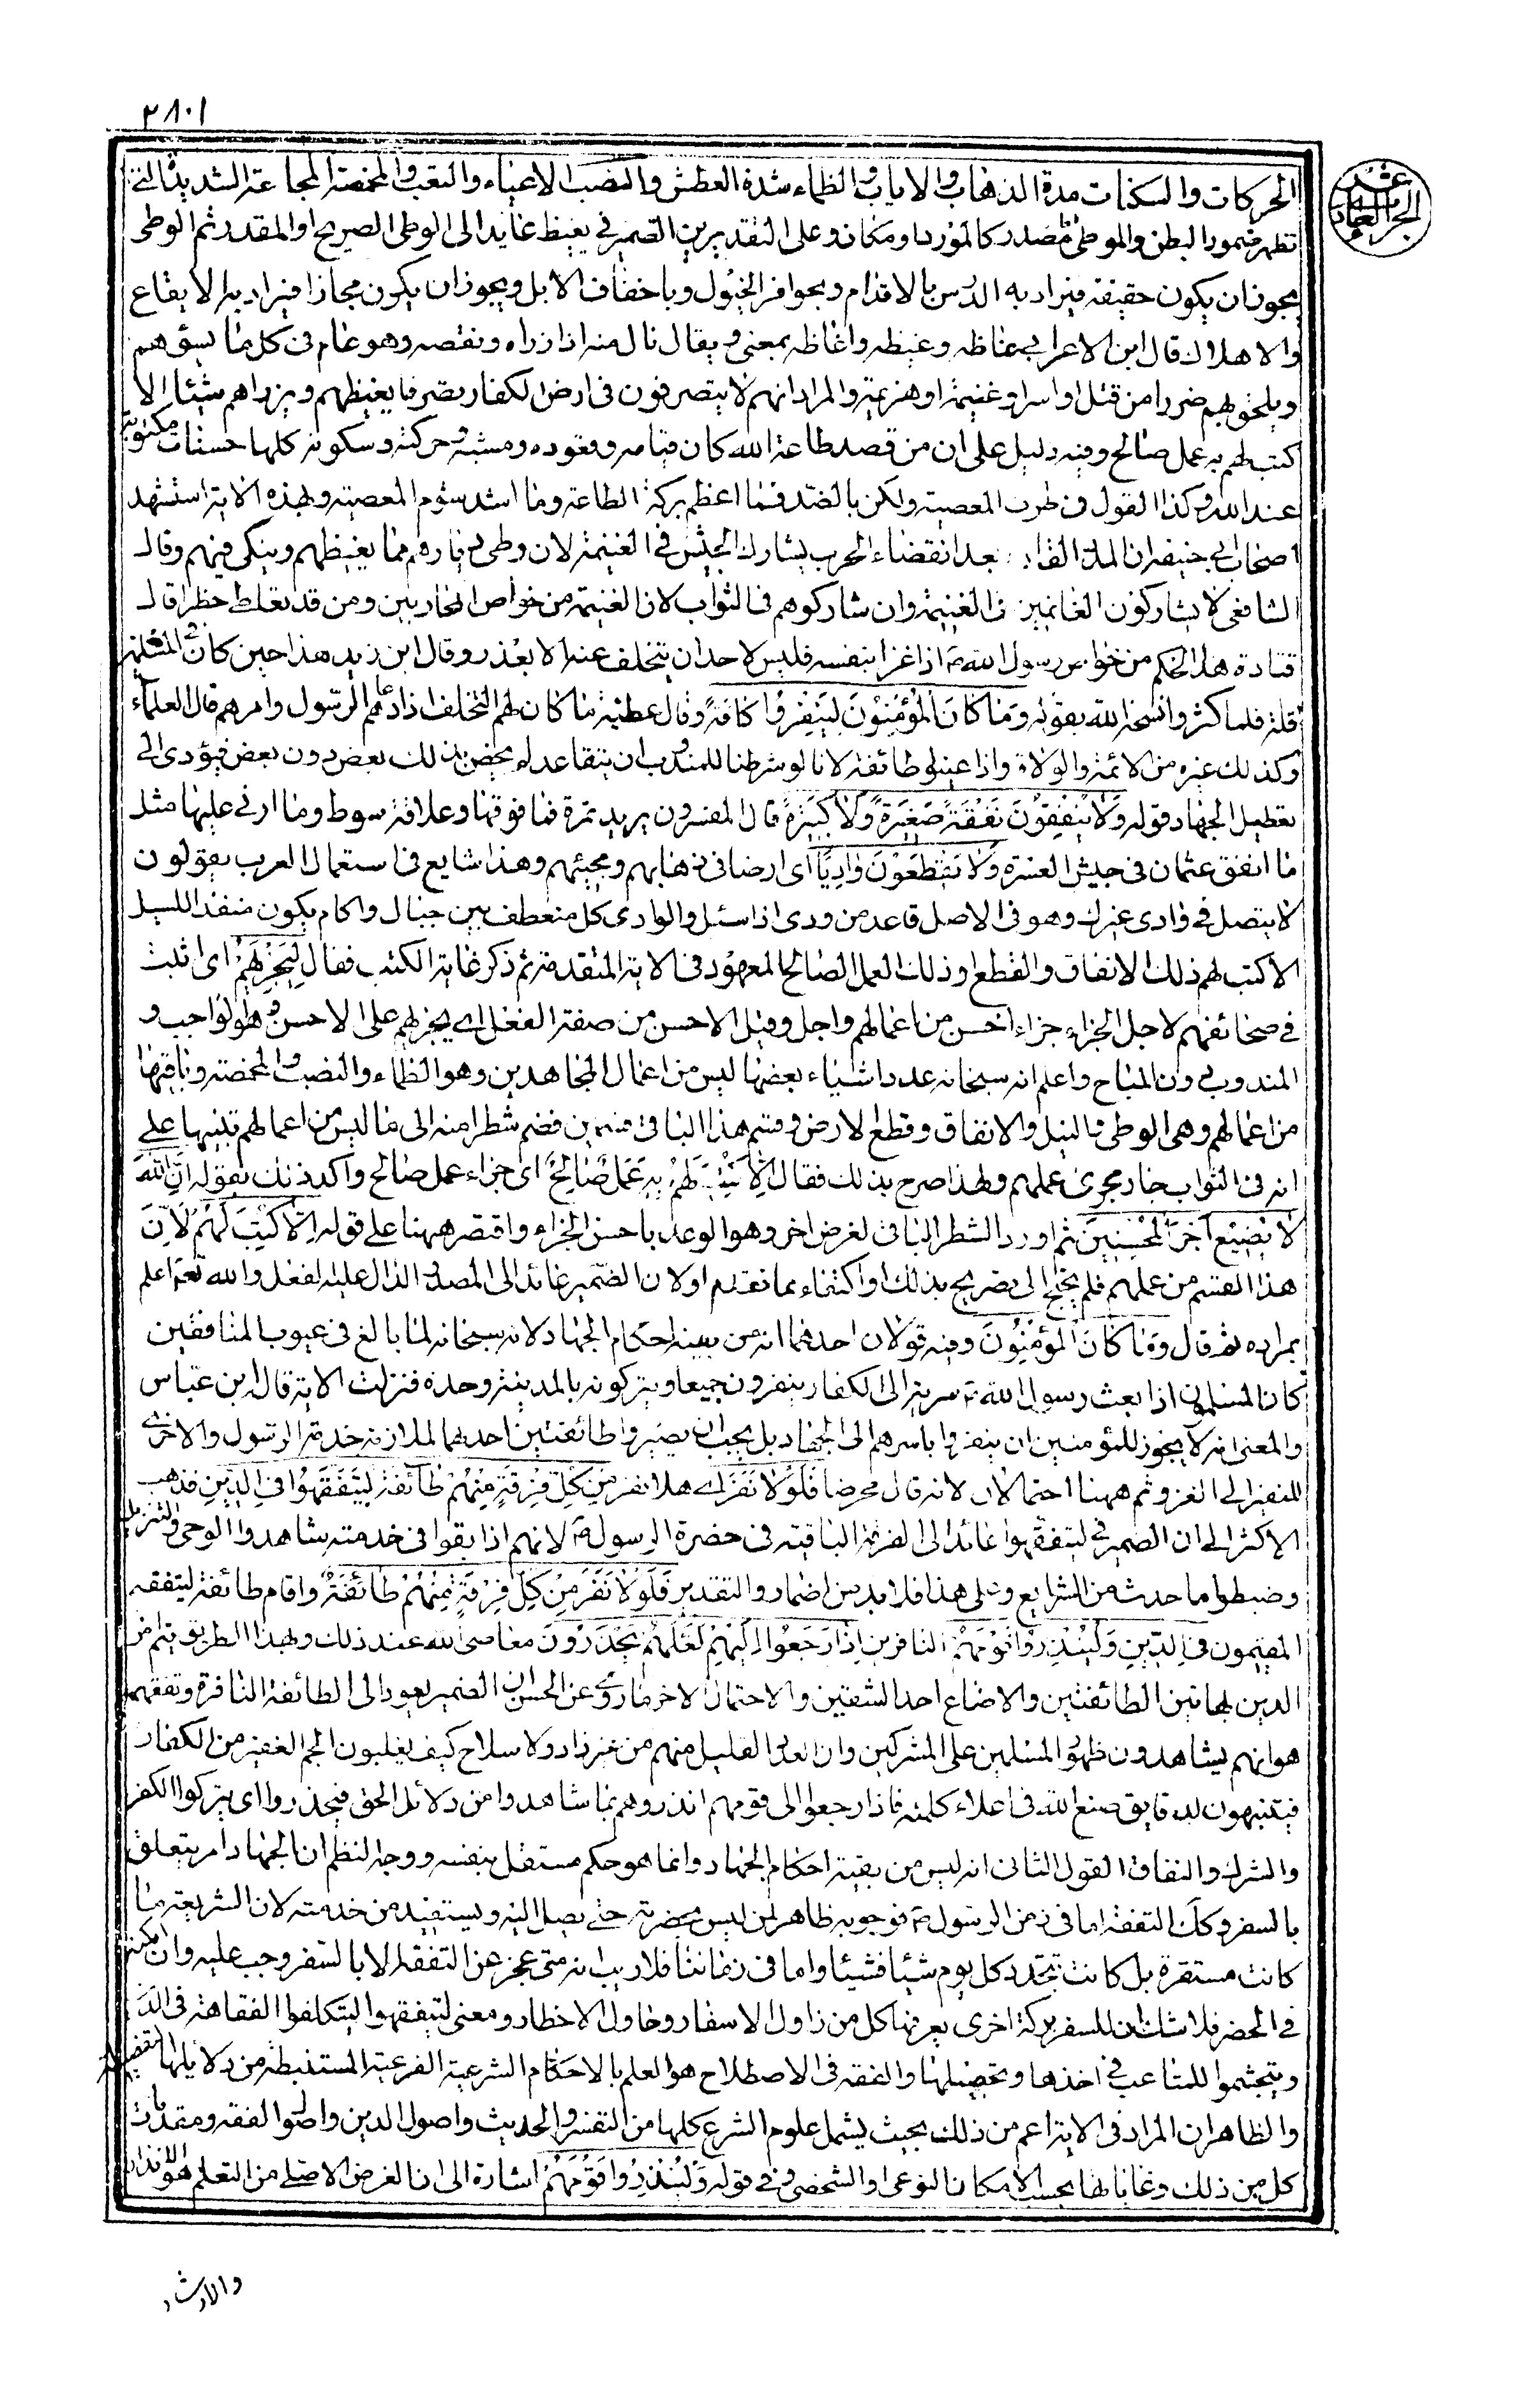 ٢٨٠١
الجزء الحادى عشر
الحركات والسكنات مدة الذهاب والاياب والظماء شدة العطش والنصب الاعياء والتعب والمخمصة المجاعة الشديدة التى
تظهر ضمور البطن والموطئ مصدر كالمورد او مكان وعلى التقديرين الضمير فى يغيظ عايد الى الوطى الصريح او المقدر ثم الوطى
يجوز ان يكون حقيقة فيراد به الدوس بالاقدام وبحوافر الخيول وباخفاف الابل ويجوز ان يكون مجازا فيراد به الايقاع
والاهلاك قال ابن الاعرابى غاظه وغيظه واغاظه بمعنى ويقال نال منه اذا زراه ونقصه وهو عام فى كل ما يسؤهم
ويلحق بهم ضررا من قتل او اسر او غنيمة او هزيمة والمراد انهم لا يتصرفون فى ارض الكفار تصرفا يغيظهم ويرزاهم شيئا الا
كتب لهم به عمل صالح وفيه دليل على ان من قصد طاعة الله كان قيامه وقعوده ومشيه وحركته وسكونه كلها حسنات مكتوبة
عند الله وكذا القول فى طرف المعصية ولكن بالضد فما اعظم بركة الطاعة وما اشد شؤم المعصية وبهذه الاية استشهد
اصحاب ابى حنيفة ان المدد القادم بعد انقضاء الحرب يشارك الجيش فى الغنيمة لان وطى ديارهم مما يغيظهم وينكى فيهم وقال
الشافعى لا يشاركون الغانمين فى الغنيمة وان شاركوهم فى الثواب لان الغنيمة من خواص المحاربين ومن قد تعاطى خطرا قال
قتادة هذا الحكم من خواص رسول الله ص اذا غزا بنفسه فليس لاحد ان يتخلف عنه الا بعذر وقال ابن زيد هذا حين كان فى المسلمين
قلة فلما كثروا نسخه الله بقوله وَمَا كَانَ الْمُؤْمِنُونَ لِيَنْفِرُوا كَافَّةً وقال عطية ما كان لهم التخلف اذا دعاهم الرسول وامرهم قال العلماء
وكذلك غيره من الائمة والولاة واذا عينوا طائفة لانا لو شرطنا للمندوب ان يتقاعد لم يختص بذلك بعض دون بعض فيؤدى الى
تعطيل الجهاد قوله وَلَا يُنْفِقُونَ نَفَقَةً صَغِيرَةً وَلَا كَبِيرَةً قال المفسرون يريد تمرة فما فوقها وعلاقة سوط وما اربى عليها مثل
ما انفق عثمان فى جيش العسرة وَلَا يَقْطَعُونَ وَادِيًا اى ارضا فى ذهابهم ومجيئهم وهذا شايع فى استعمال العرب يقولون
لا تصل فى وادى غيرك وهو فى الاصل فاعل من ودى اذا سئل والوادى كل منعطف بين جبال واكام يكون منفذا للسيل
الا كتب لهم ذلك الانفاق والقطع او ذلك العمل الصالح المعهود فى الاية المتقدمة ثم ذكر غاية الكتب فقال لِيَجْزِيَهُمْ اى اثبت
فى صحائفهم لاجل الجزاء جزاء احسن من اعمالهم واجل وقيل الاحسن من صفة الفعل اى يجزيهم على الاحسن وهو الواجب و
المندوب دون المباح واعلم انه سبحانه عدد اشياء بعضها ليس من اعمال المجاهدين وهو الظماء والنصب والمخمصة وباقيها
من اعمالهم وهى الوطى والنيل والانفاق وقطع الارض وقسم هذا الباقى قسمين فضم شطرا منه الى ما ليس من اعمالهم تنبيها على
انه فى الثواب جار مجرى عملهم ولهذا صرح بذلك فقال اِلَّا كُتِبَ لَهُمْ بِهِ عَمَلٌ صَالِحٌ اى جزاء عمل صالح واكد ذلك بقوله اِنَّ اللّٰهَ
لَا يُضِيعُ اَجْرَ الْمُحْسِنِينَ ثم اورد الشطر الباقى لغرض اخر وهو الوعد باحسن الجزاء واقتصر ههنا على قوله اِلَّا كُتِبَ لَهُمْ لِاَنَّ
هذا القسم من عملهم فلم يحتج الى تصريح بذلك او اكتفاء بما تقدم او لان الضمير عائد الى المصدر الدال عليه الفعل والله تعم اعلم
بمراده ثم قال وَمَا كَانَ الْمُؤْمِنُونَ وفيه قولان احدهما انه من بقية احكام الجهاد لانه سبحانه لما بالغ فى عيوب المنافقين
كان المسلمون اذا بعث رسول الله ص سرية الى الكفار ينفرون جميعا ويتركونه بالمدينة وحده فنزلت الاية قال ابن عباس
والمعنى انه لا يجوز للمؤمنين ان ينفروا باسرهم الى الجهاد بل يجب ان يصيروا طائفتين احدهما لملازمة خدمة الرسول والاخرى
للنفير الى الغزو ثم ههنا احتمالان لانه قال محرضا فَلَوْلَا نَفَرَ اى هلا نفر مِنْ كُلِّ فِرْقَةٍ مِنْهُمْ طَائِفَةٌ لِيَتَفَقَّهُوا فِى الدِّينِ فذهب
الاكثر الى ان الضمير فى ليتفقهوا عائد الى الفرقة الباقية فى حضرة الرسول ص لانهم اذا بقوا فى خدمته شاهدوا الوحى والتنزيل
وضبطوا ما حدث من الشرايع وعلى هذا فلا بد من اضمار والتقدير فَلَوْلَا نَفَرَ مِنْ كُلِّ فِرْقَةٍ مِنْهُمْ طَائِفَةٌ واقام طائفة ليتفقه
المقيمون فى الدِّينِ وَلِيُنْذِرُوا قَوْمَهُمْ النافرين اِذَا رَجَعُوا اِلَيْهِمْ لَعَلَّهُمْ يَحْذَرُونَ معاصى الله عند ذلك وبهذا الطريق يتم امر
الدين بهاتين الطائفتين والا ضاع احد الشقين والاحتمال الاخر ما روى عن الحسن ان الضمير يعود الى الطائفة النافرة وتفقههم
هو انهم يشاهدون ظهور المسلمين على المشركين وان العدد القليل منهم من غير زاد ولا سلاح كيف يغلبون الجم الغفير من الكفار
فيتنبهون لدقايق صنع الله فى اعلاء كلمته فاذا رجعوا الى قومهم انذروهم بما شاهدوا من دلائل الحق فيحذروا اى يتركوا الكفر
والشرك والنفاق القول الثانى انه ليس من بقية احكام الجهاد وانما هو حكم مستقل بنفسه ووجه النظم ان الجهاد امر يتعلق
بالسفر وكك التفقه اما فى زمن الرسول ص فوجوبه ظاهر لمن ليس بحضرته حتى يصل اليه ويستفيد من خدمته لان الشريعة ما
كانت مستقرة بل كانت تتجدد كل يوم شيئا فشيئا واما فى زماننا فلا ريب انه متى عجز عن التفقه الا بالسفر وجب عليه وان امكنه
فى الحضر فلا شك ان للسفر بركة اخرى يعرفها كل من زاول الاسفار وحاول الاخطار ومعنى ليتفقهوا ليتكلفوا الفقاهة فى الدين
ويتجشموا المتاعب فى اخذها وتحصيلها والفقه فى الاصطلاح هو العلم بالاحكام الشرعية الفرعية المستنبطة من دلايلها التفصيلية
والظاهر ان المراد فى الاية اعم من ذلك بحيث يشمل علوم الشرع كلها من التفسير والحديث واصول الدين واصول الفقه ومقدمات
كل من ذلك وغاياتها بحسب الامكان النوعى او الشخصى وفى قوله وَلِيُنْذِرُوا قَوْمَهُمْ اشارة الى ان الغرض الاصلى من التعلم هو الانذار
والارشاد